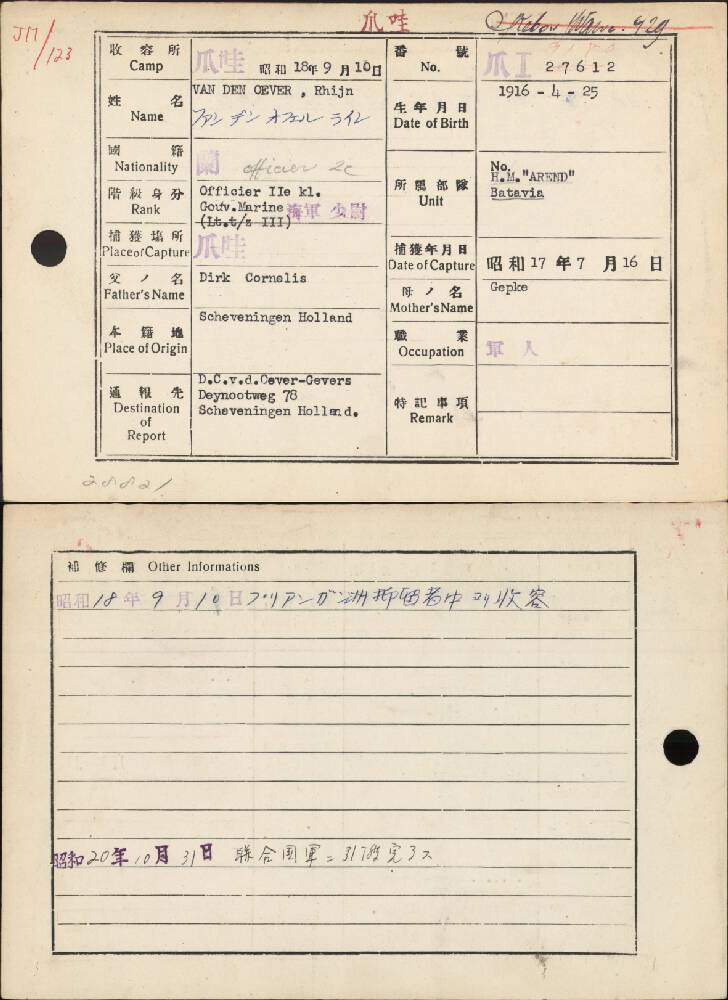 爪哇
JM/123
收容所 Camp
爪哇 昭和 18年 9月 10日
番號 No.
爪I 27612
姓名 Name
VAN DEN OEVER , Rhijn
ファン デン オフェル ライン
生年月日 Date of Birth
1916 - 4 - 25
國籍 Nationality
蘭 officier 2e
階級身分 Rank
Officier IIe kl.
Gouv.Marine
(Lt.t/z III) 海軍 少尉
所屬部隊 Unit
No.
H.M."AREND"
Batavia
捕獲場所 Place of Capture
爪哇
捕獲年月日 Date of Capture
昭和 17 年 7 月 16 日
父ノ名 Father's Name
Dirk Cornelis
母ノ名 Mother's Name
Gepke
本籍地 Place of Origin
Scheveningen Holland
職業 Occupation
軍人
通報先 Destination of Report
D.C.v.d.Oever-Gevers
Deynootweg 78
Scheveningen Holland.
特記事項 Remark
補修欄 Other Informations
昭和 18 年 9 月 10 日 プリアンガン洲抑留者中ヨリ收容
昭和 20年 10月 31日 聯合国軍ニ引渡完了ス